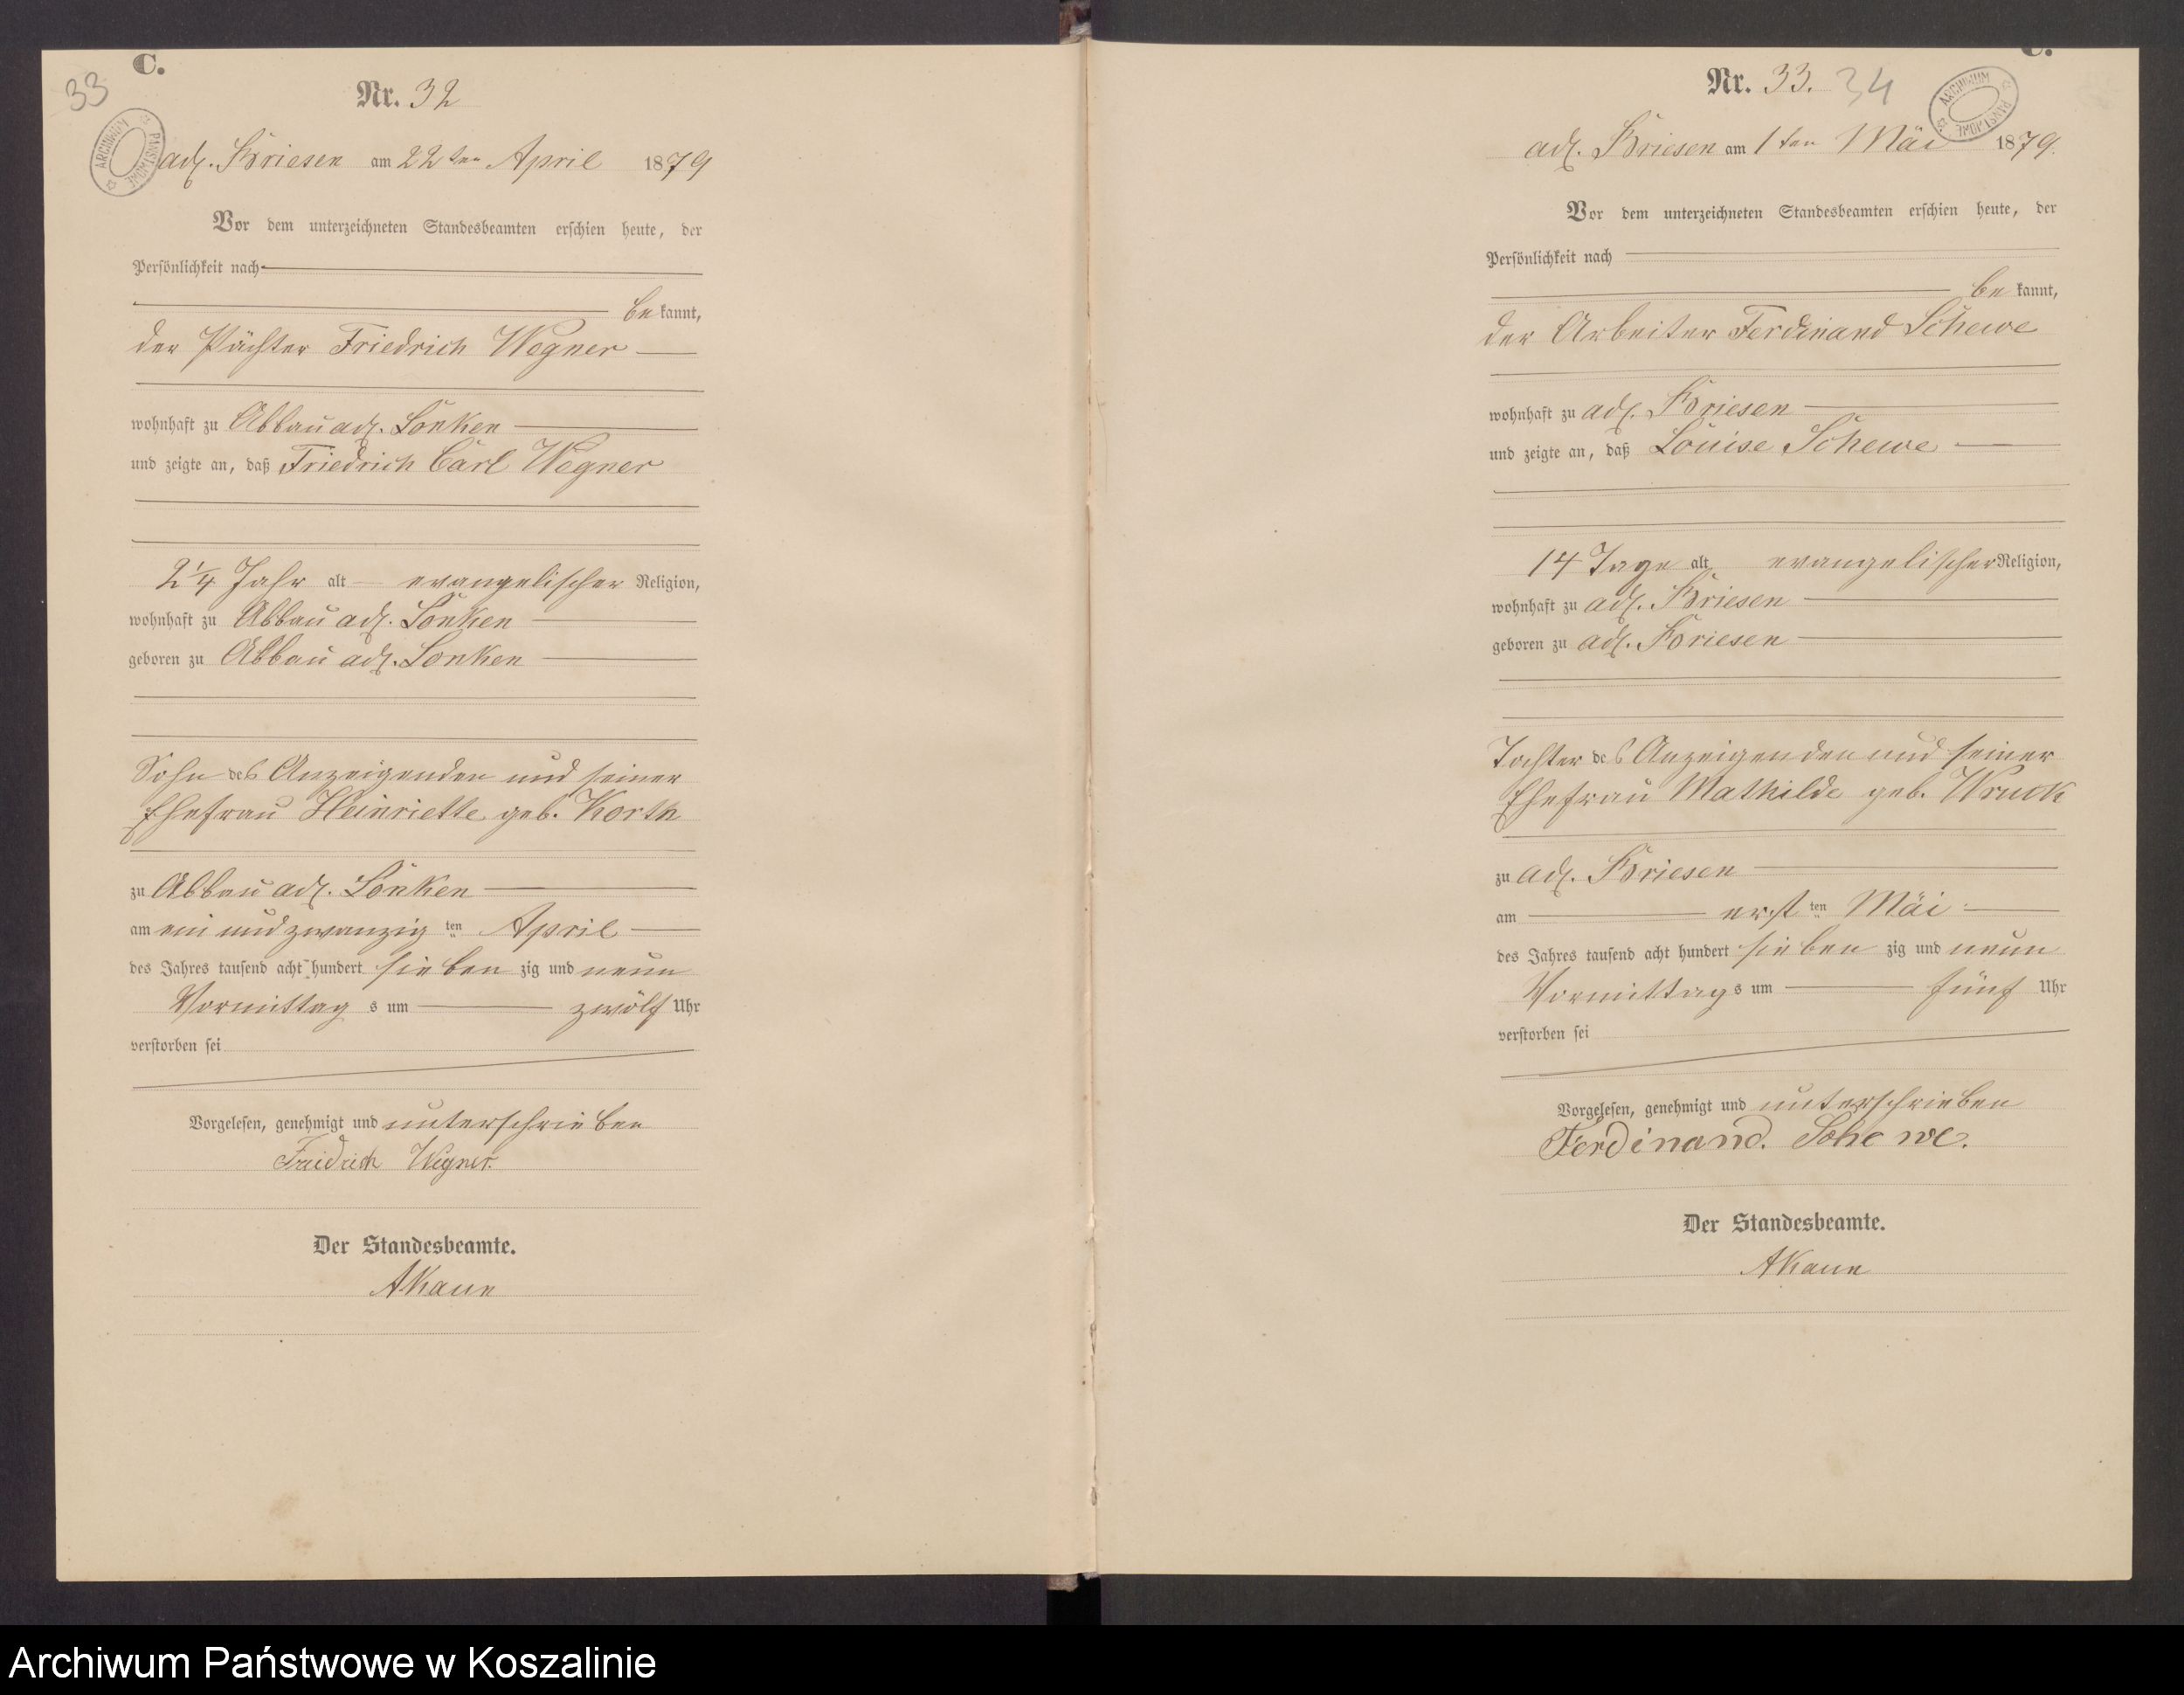 C.
33
Nr. 32
ARCHIWUM PAŃSTWOWE
adl. Briesen am 22ten April 1879
Vor dem unterzeichneten Standesbeamten erschien heute, der
Persönlichkeit nach
be kannt,
der Pächter Friedrich Wegner
wohnhaft zu Abbau adl. Lonken
und zeigte an, daß Friedrich Carl Wegner
2 1/4 Jahr alt evangelischer Religion,
wohnhaft zu Abbau adl. Lonken
geboren zu Abbau adl. Lonken
Sohn des Anzeigenden und seiner
Ehefrau Heinriette geb. Korth
zu Abbau adl. Lonken
am ein und zwanzig ten April
des Jahres tausend acht hundert sieben zig und neun
Vormittag s um zwölf Uhr
verstorben sei
Vorgelesen, genehmigt und unterschrieben
Friedrich Wegner
Der Standesbeamte.
C.
Nr. 33. 34
ARCHIWUM PAŃSTWOWE
adl. Briesen am 1ten Mai 1879.
Vor dem unterzeichneten Standesbeamten erschien heute, der
Persönlichkeit nach
be kannt,
der Arbeiter Ferdinand Schewe
wohnhaft zu adl. Briesen
und zeigte an, daß Louise Schewe
14 Tage alt evangelischer Religion,
wohnhaft zu adl. Briesen
geboren zu adl. Briesen
Tochter des Anzeigenden und seiner
Ehefrau Mathilde geb. Wruck
zu adl. Briesen
am erst ten Mai
des Jahres tausend acht hundert sieben zig und neun
Vormittag s um fünf Uhr
verstorben sei
Vorgelesen, genehmigt und unterschrieben
Ferdinand. Schewe.
Der Standesbeamte.
Archiwum Państwowe w Koszalinie